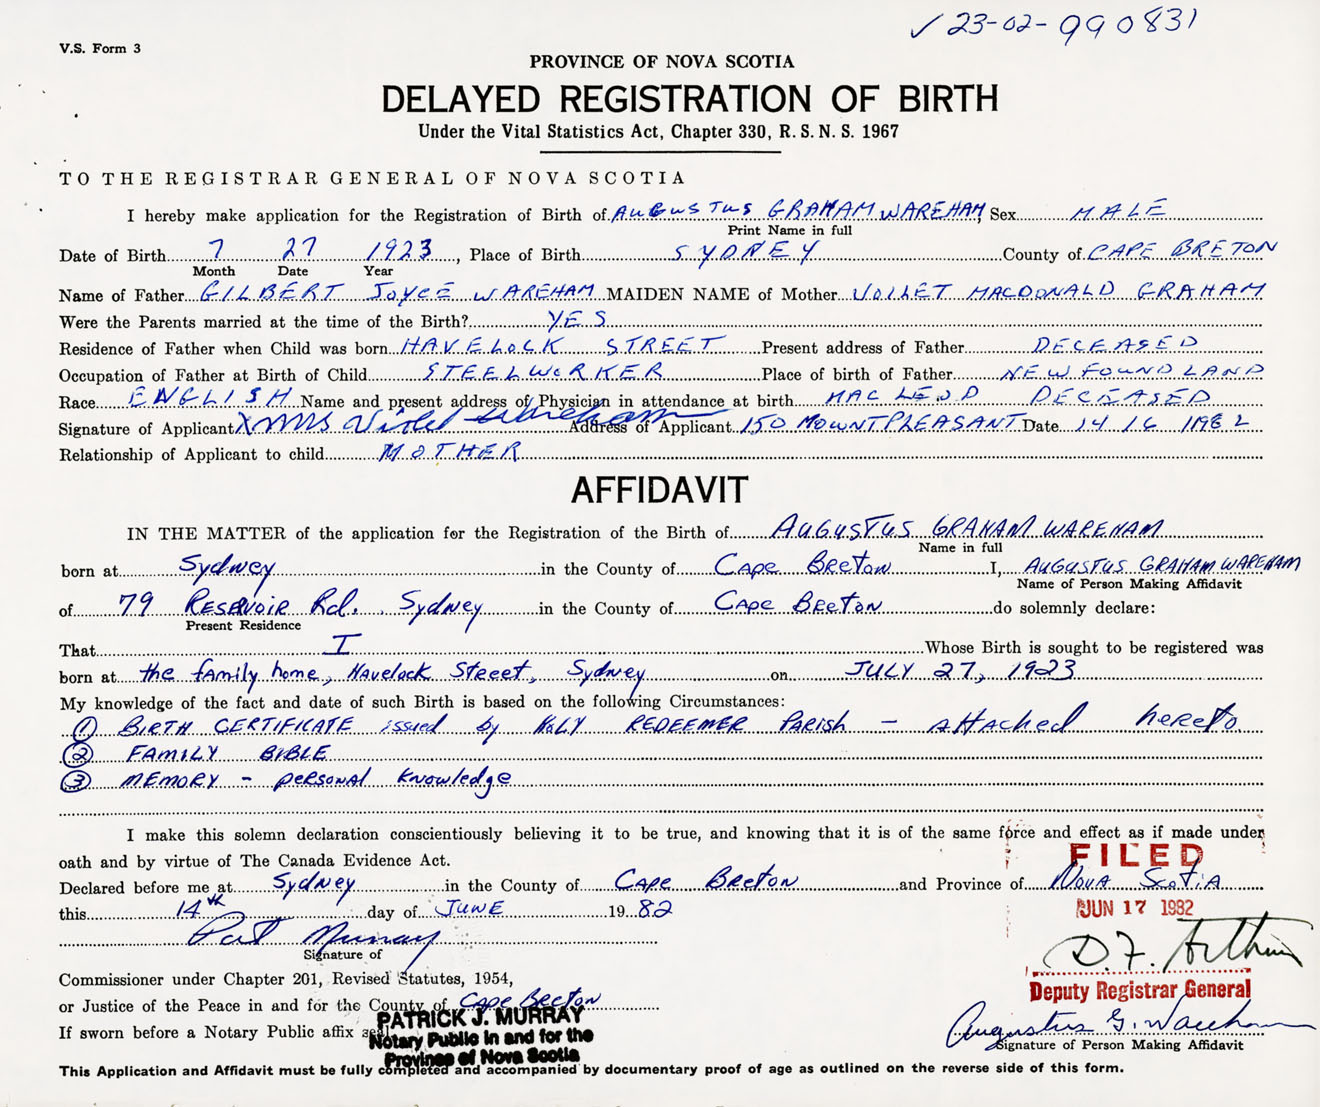 ✓ 23-02-990831
V.S. Form 3
PROVINCE OF NOVA SCOTIA
DELAYED REGISTRATION OF BIRTH
Under the Vital Statistics Act, Chapter 330, R.S.N.S. 1967
TO THE REGISTRAR GENERAL OF NOVA SCOTIA
I hereby make application for the Registration of Birth of AUGUSTUS GRAHAM WAREHAM Sex MALE
Print Name in full
Date of Birth 7 27 1923, Place of Birth SYDNEY County of CAPE BRETON
Month Date Year
Name of Father GILBERT JOYCE WAREHAM MAIDEN NAME of Mother VOILET MACDONALD GRAHAM
Were the Parents married at the time of the Birth? YES
Residence of Father when Child was born HAVELOCK STREET Present address of Father DECEASED
Occupation of Father at Birth of Child STEELWORKER Place of birth of Father NEWFOUNDLAND
Race ENGLISH Name and present address of Physician in attendance at birth MACLEOD DECEASED
Signature of Applicant X Mrs Violet Wareham Address of Applicant 150 MOUNT PLEASANT Date 14 16 1982
Relationship of Applicant to child MOTHER
AFFIDAVIT
IN THE MATTER of the application for the Registration of the Birth of AUGUSTUS GRAHAM WAREHAM
Name in full
born at Sydney in the County of Cape Breton I, AUGUSTUS GRAHAM WAREHAM
Name of Person Making Affidavit
of 79 Reservoir Rd., Sydney in the County of Cape Breton do solemnly declare:
Present Residence
That I Whose Birth is sought to be registered was
born at the family home, Havelock Street, Sydney on JULY 27, 1923
My knowledge of the fact and date of such Birth is based on the following Circumstances:
① BIRTH CERTIFICATE issued by HOLY REDEEMER PARISH - attached hereto.
② FAMILY BIBLE
③ MEMORY - personal knowledge
I make this solemn declaration conscientiously believing it to be true, and knowing that it is of the same force and effect as if made under
oath and by virtue of The Canada Evidence Act.
FILED
Declared before me at Sydney in the County of Cape Breton and Province of Nova Scotia
this 14th day of JUNE 1982
JUN 17 1982
Pat Murray
Signature of
D. F. Arthur
Commissioner under Chapter 201, Revised Statutes, 1954,
Deputy Registrar General
or Justice of the Peace in and for the County of Cape Breton
PATRICK J. MURRAY
If sworn before a Notary Public affix seal
Notary Public in and for the
Province of Nova Scotia
Augustus G. Wareham
Signature of Person Making Affidavit
This Application and Affidavit must be fully completed and accompanied by documentary proof of age as outlined on the reverse side of this form.